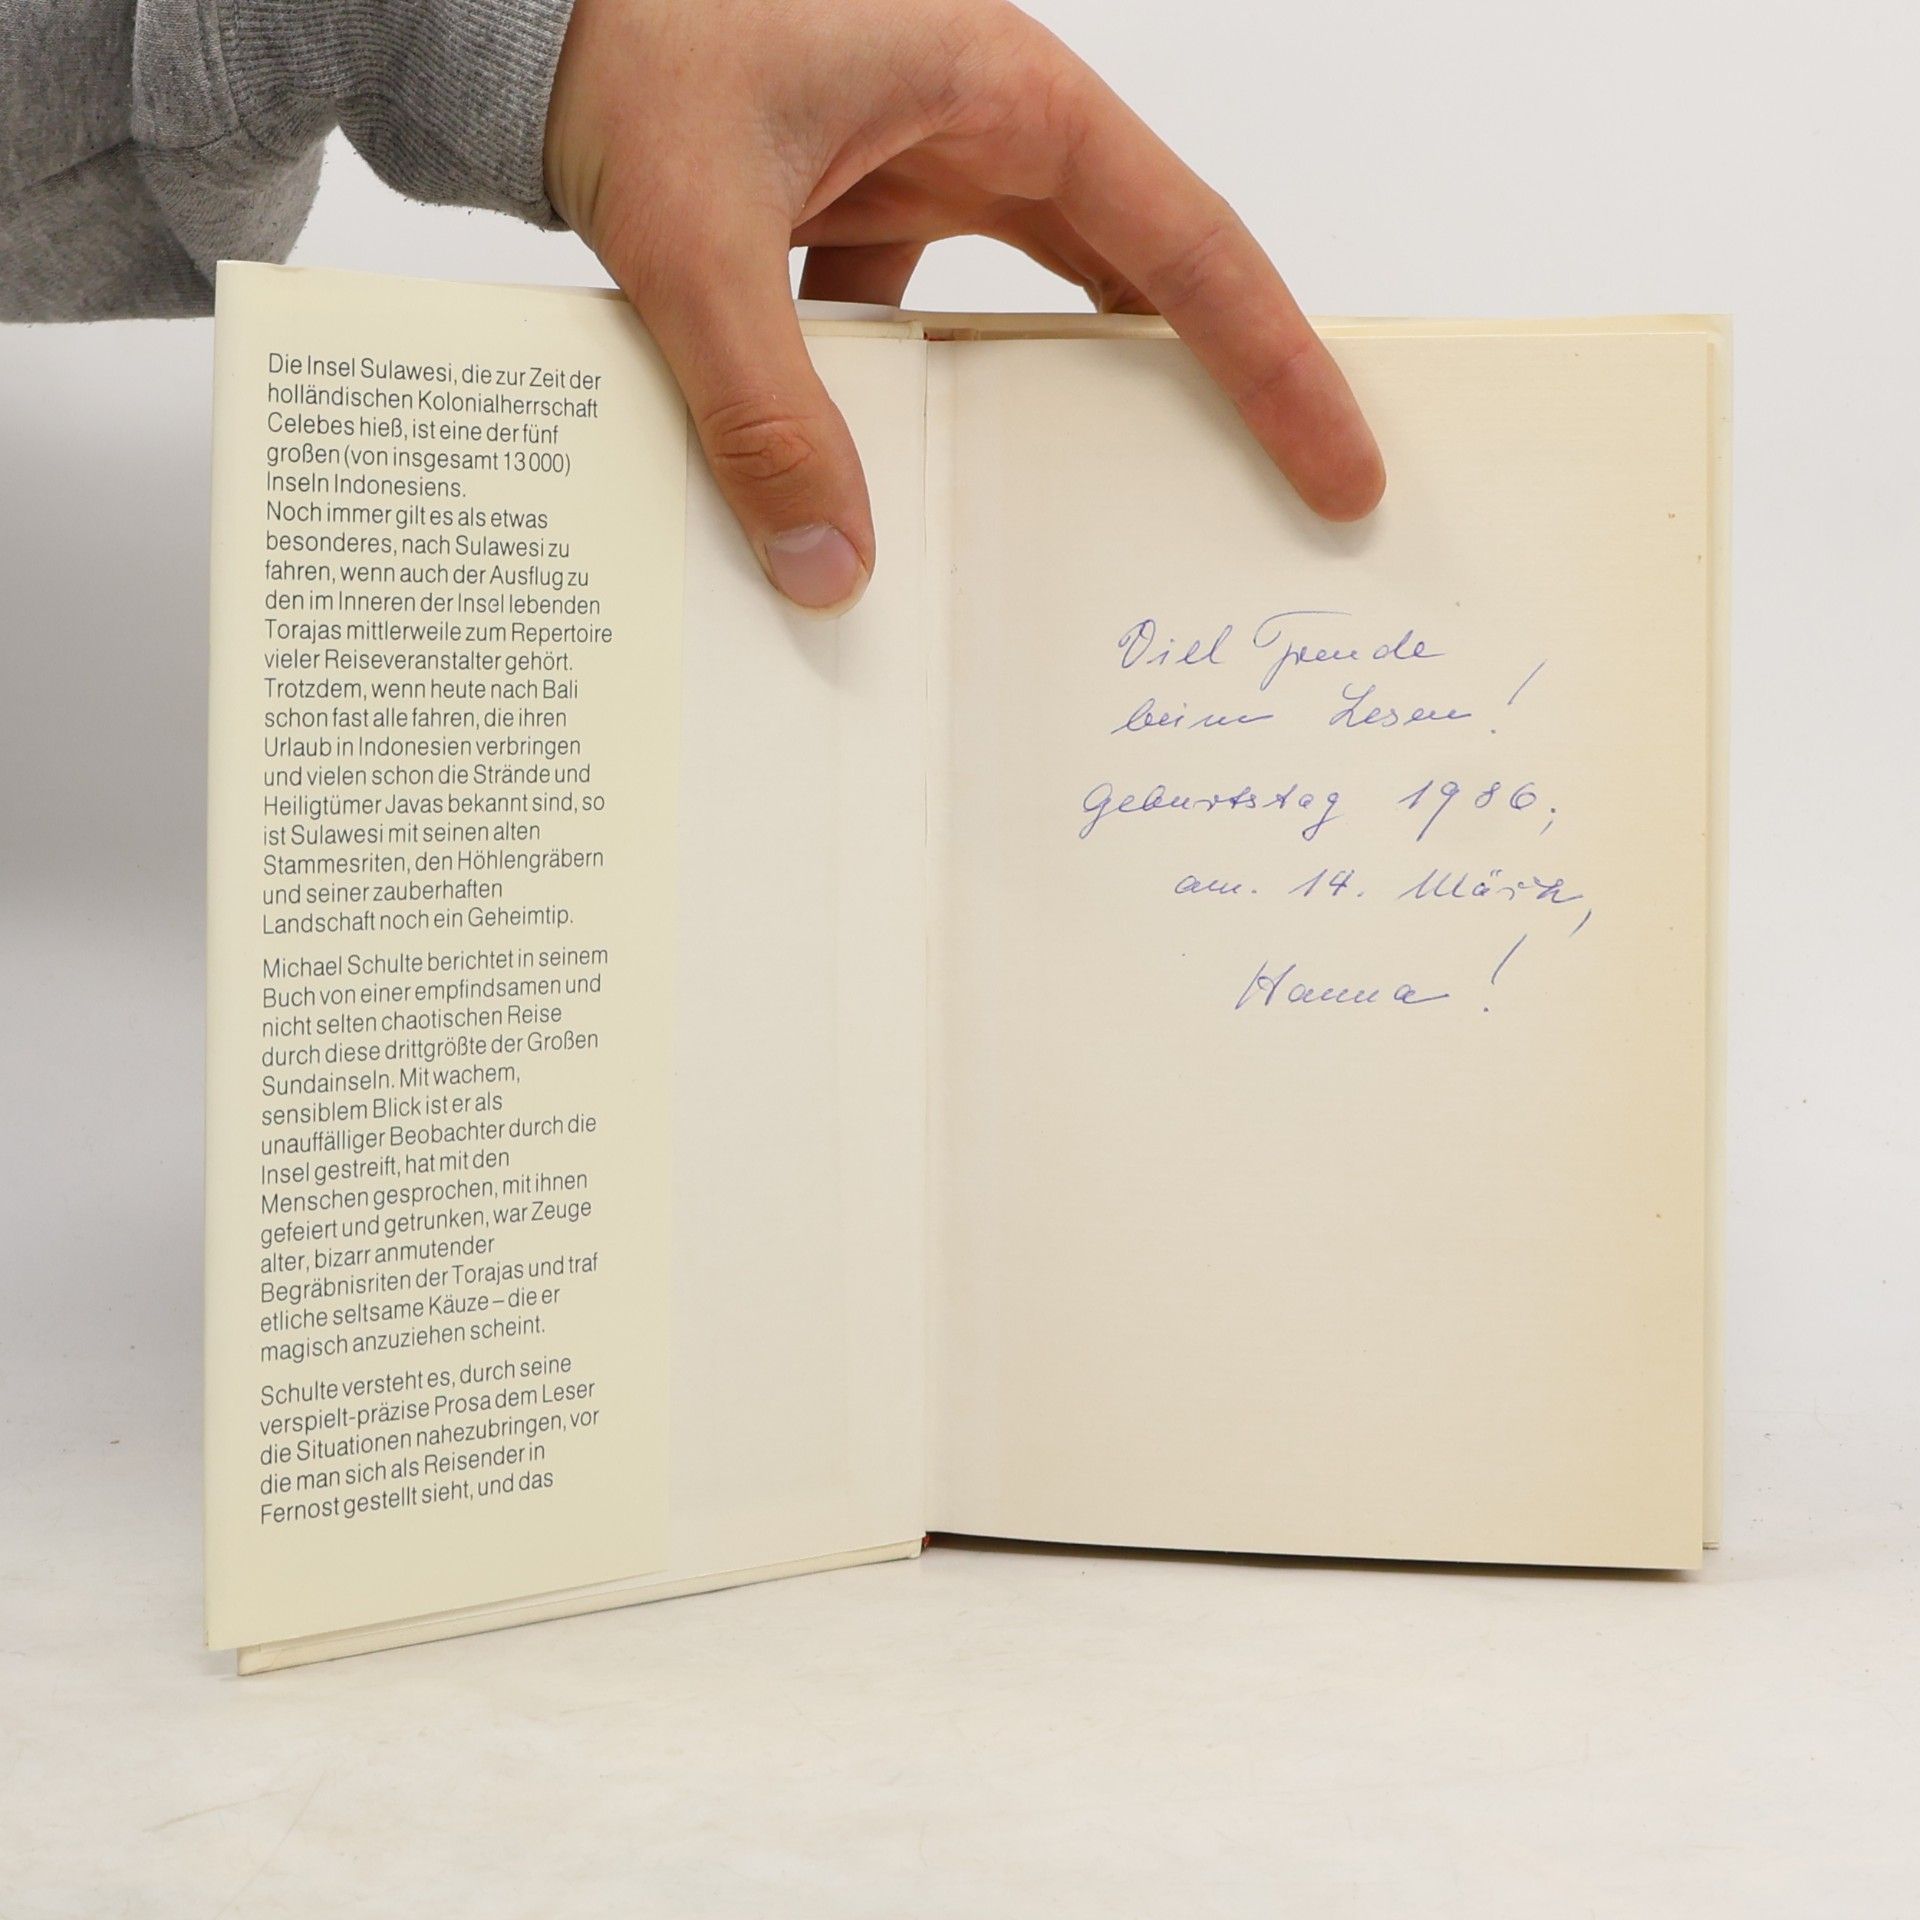 Die Insel Sulawesi, die zur Zeit der
holländischen Kolonialherrschaft
Celebes hieß, ist eine der fünf
großen (von insgesamt 13 000)
Inseln Indonesiens.
Noch immer gilt es als etwas
besonderes, nach Sulawesi zu
fahren, wenn auch der Ausflug zu
den im Inneren der Insel lebenden
Torajas mittlerweile zum Repertoire
vieler Reiseveranstalter gehört.
Trotzdem, wenn heute nach Bali
schon fast alle fahren, die ihren
Urlaub in Indonesien verbringen
und vielen schon die Strände und
Heiligtümer Javas bekannt sind, so
ist Sulawesi mit seinen alten
Stammesriten, den Höhlengräbern
und seiner zauberhaften
Landschaft noch ein Geheimtip.
Michael Schulte berichtet in seinem
Buch von einer empfindsamen und
nicht selten chaotischen Reise
durch diese drittgrößte der Großen
Sundainseln. Mit wachem,
sensiblem Blick ist er als
unauffälliger Beobachter durch die
Insel gestreift, hat mit den
Menschen gesprochen, mit ihnen
gefeiert und getrunken, war Zeuge
alter, bizarr anmutender
Begräbnisriten der Torajas und traf
etliche seltsame Käuze – die er
magisch anzuziehen scheint.
Schulte versteht es, durch seine
verspielt-präzise Prosa dem Leser
die Situationen nahezubringen, vor
die man sich als Reisender in
Fernost gestellt sieht, und das
Viel Freude
beim Lesen!
Geburtstag 1986;
am. 14. März,
Hanna!